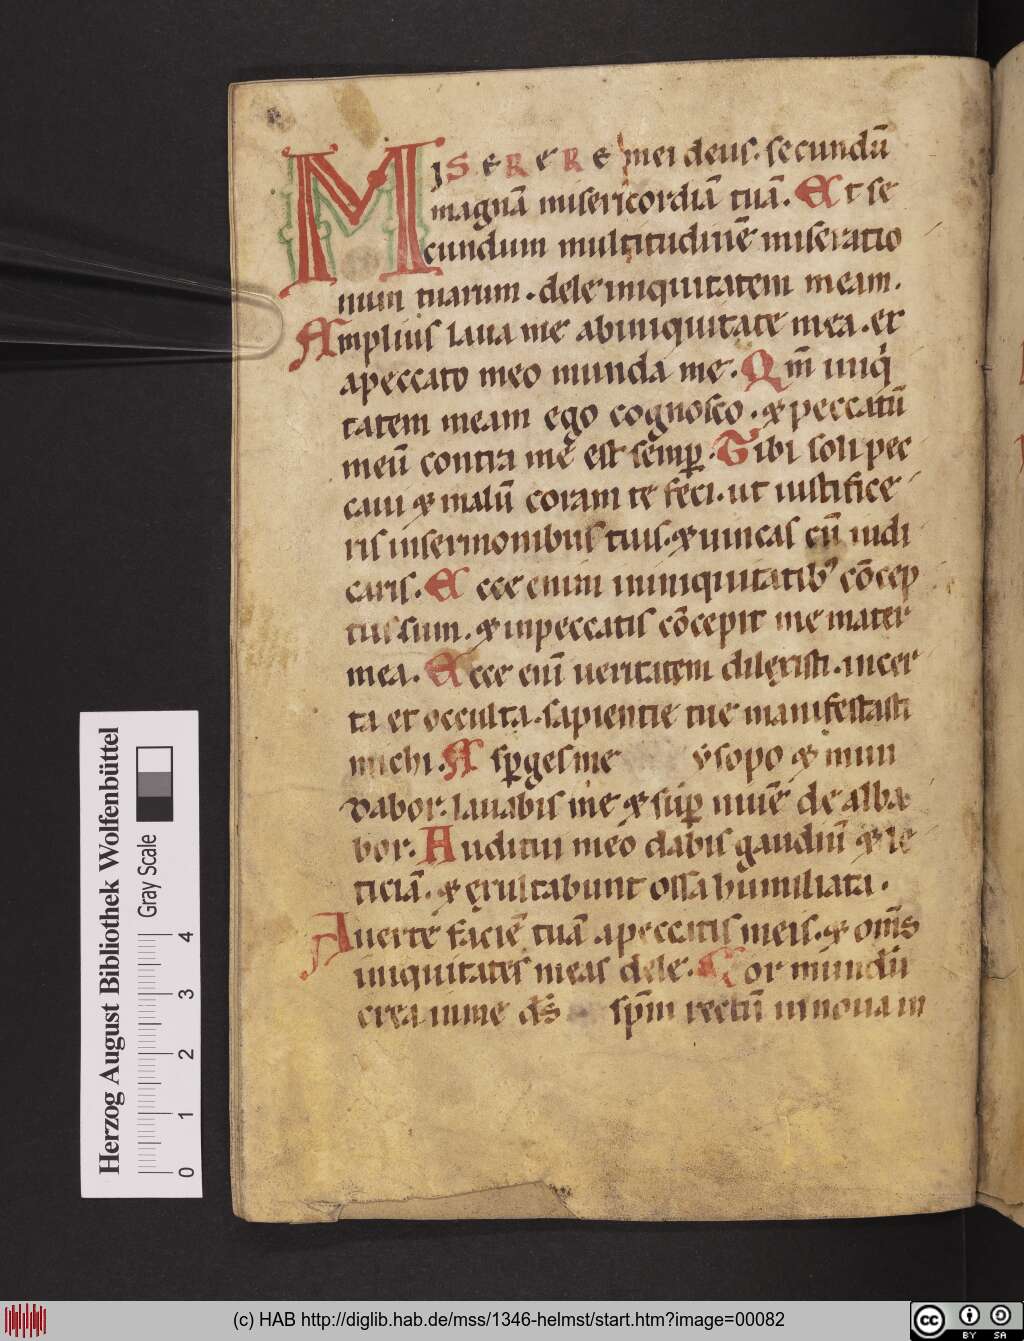 MISERERE mei deus. secundū
magnā misericordiā tuā. Et se
cundum multitudinē miseratio
num tuarum. dele iniquitatem meam.
Amplius laua me abiniquitate mea. et
apeccato meo munda me. Qm̄ iniq̇
tatem meam ego cognosco. & peccatū
meū contra me est semp̲. Tibi soli pec
caui & malū coram te feci. ut iustifice
ris insermonibus tuis. & uincas cū iudi
caris. Ecce enim ininiquitatib' cōcep
tus sum. & inpeccatis cōcepit me mater
mea. Ecce enī ueritatem dilęxisti. incer
ta et occulta. sapientie tue manifestasti
michi. Asp̲ges me ẏsopo & mun
dabor. lauabis me & sup̲ niuē de alba
bor. Auditui meo dabis gaudiū & le
ticiā. & ęxultabunt ossa humiliata.
Auerte faciē tuā apeccatis meis. & om̄s
iniquitates meas dele. Cor mundū
crea inme ds̄ spm̄ rectū innoua in
Herzog August Bibliothek Wolfenbüttel
Gray Scale
0 1 2 3 4
(c) HAB http://diglib.hab.de/mss/1346-helmst/start.htm?image=00082
cc BY SA